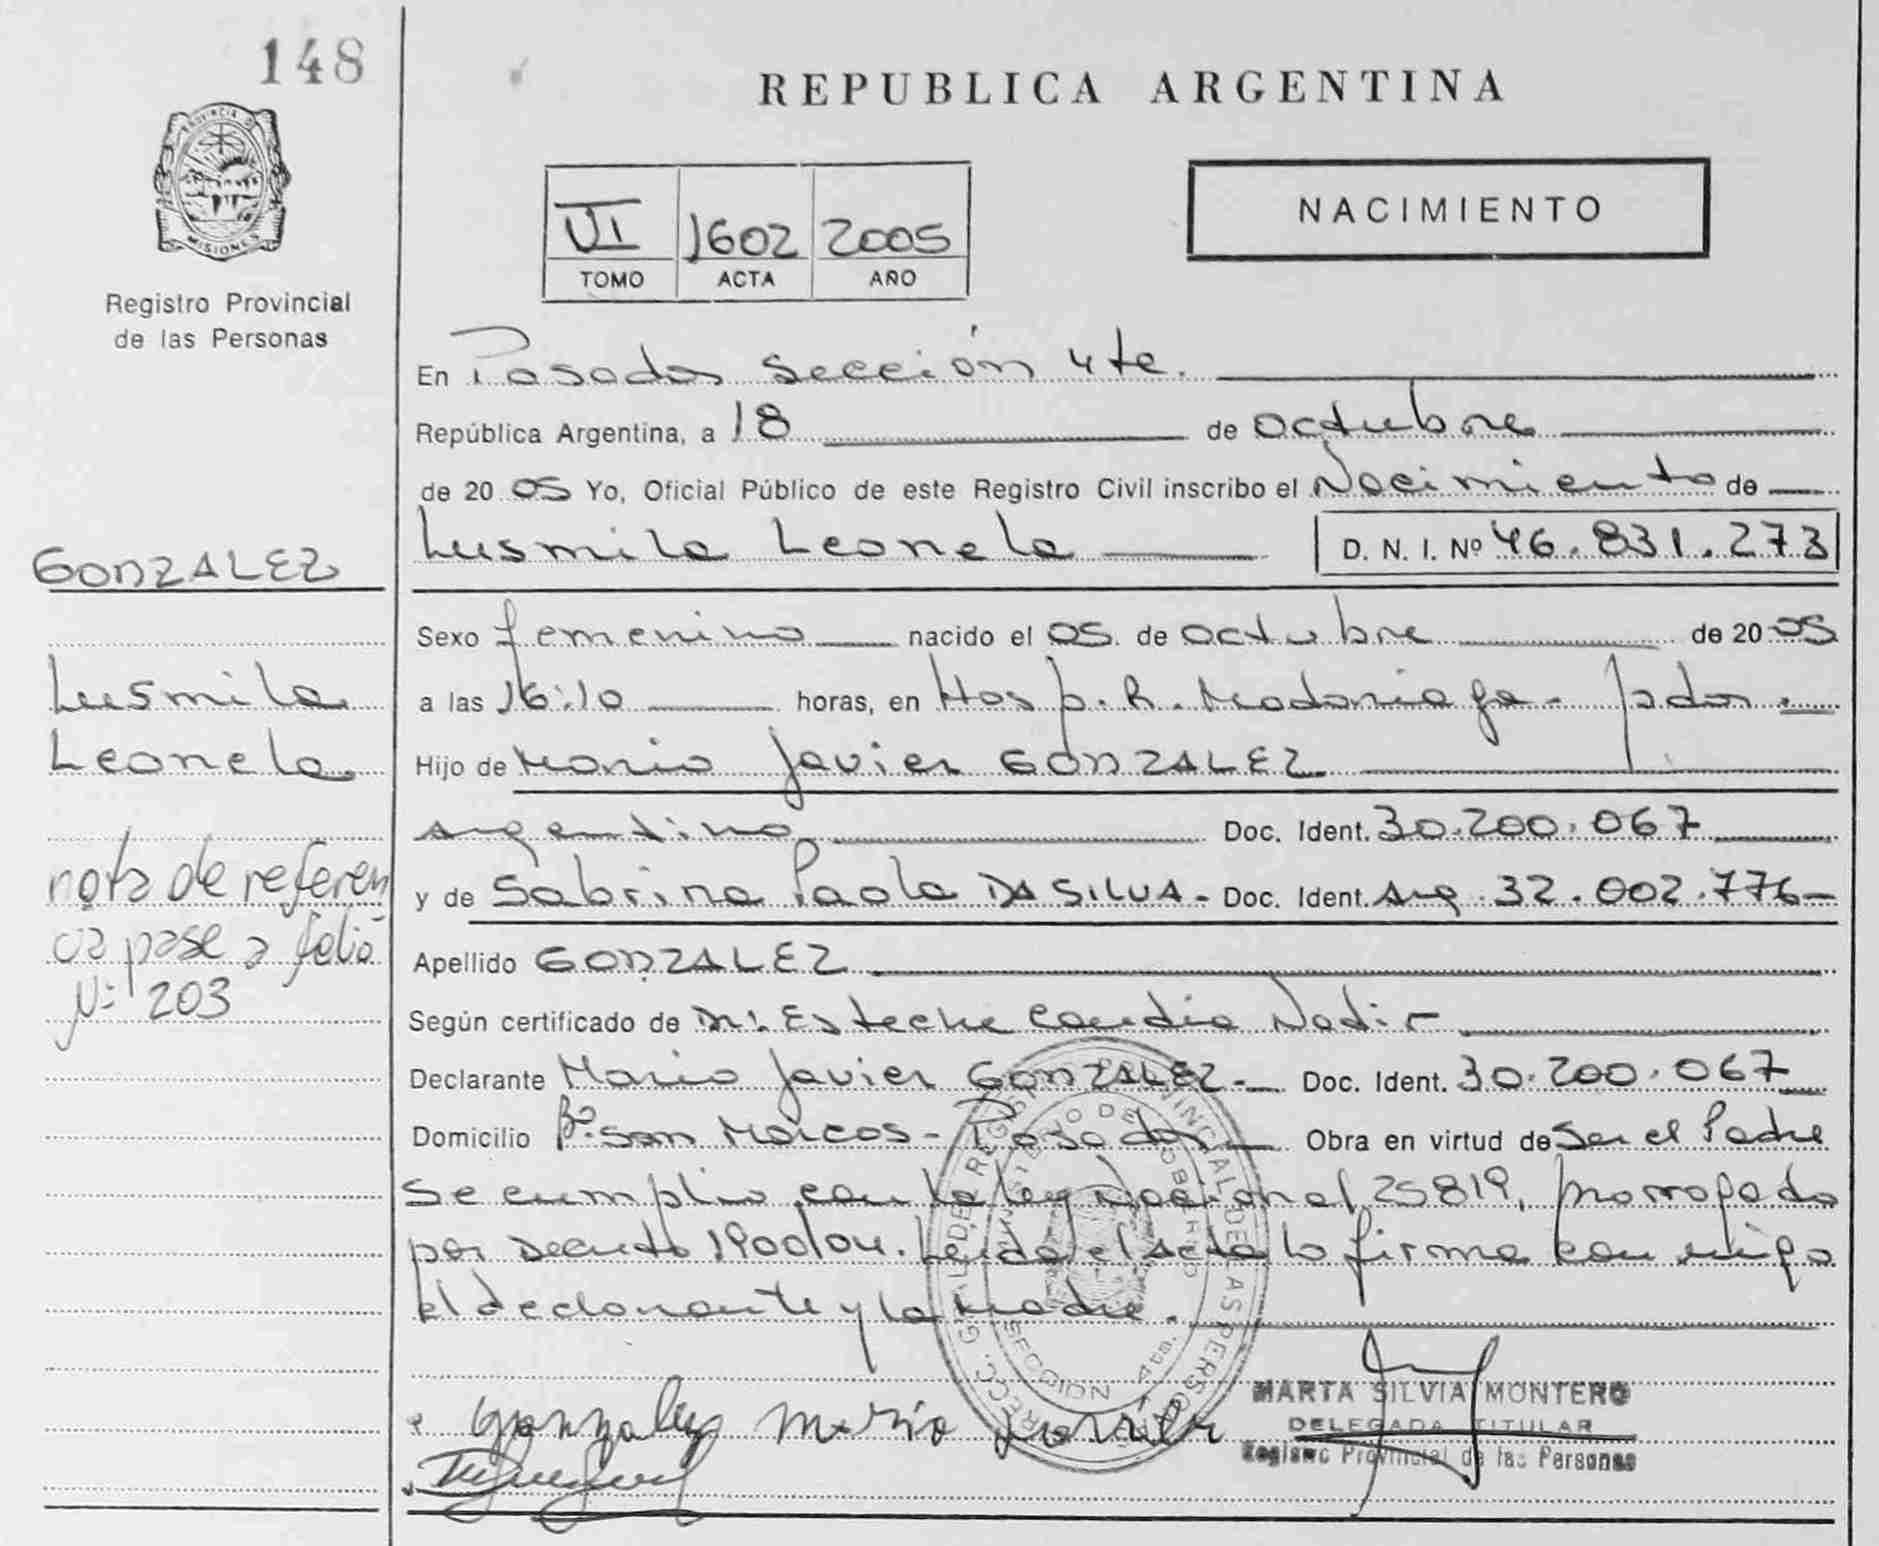 148
PROVINCIA D
MISIONES
Registro Provincial
de las Personas
REPUBLICA ARGENTINA
VI 1602 2005
TOMO ACTA AÑO
NACIMIENTO
En Posadas sección 4ta.
República Argentina, a 18 de octubre
de 20 05 Yo, Oficial Público de este Registro Civil inscribo el Nacimiento de
Lusmila Leonela D. N. I. Nº 46.831.273
GONZALEZ
Lusmila
Leonela
nota de referen
cia pase a folio
Nº 203
Sexo femenino nacido el 05 de octubre de 20 05
a las 16:10 horas, en Hosp. R. Madariaga - Pdas.
Hijo de Mario Javier GONZALEZ
argentino Doc. Ident. 30.200.067
y de Sabrina Paola DA SILVA - Doc. Ident. Arg. 32.002.776
Apellido GONZALEZ
Según certificado de Dr. Esteche Claudio Nadir
Declarante Mario Javier GONZALEZ - Doc. Ident. 30.200.067
Domicilio Bº San Marcos - Posadas Obra en virtud de Ser el Padre
Se cumplio con la ley nacional 25819, prorrogada
por Decreto 1900/04. Leida el acta la firma con migo
el declarante y la madre.
SECCION 4ta.
Gonzalez Mario Javier
MARTA SILVIA MONTERO
DELEGADA TITULAR
Registro Provincial de las Personas